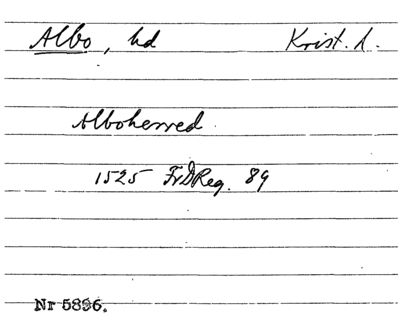 Albo, hd Krist. l.
Alboherred.
1525 FrDReg. 89
Nr 5896.